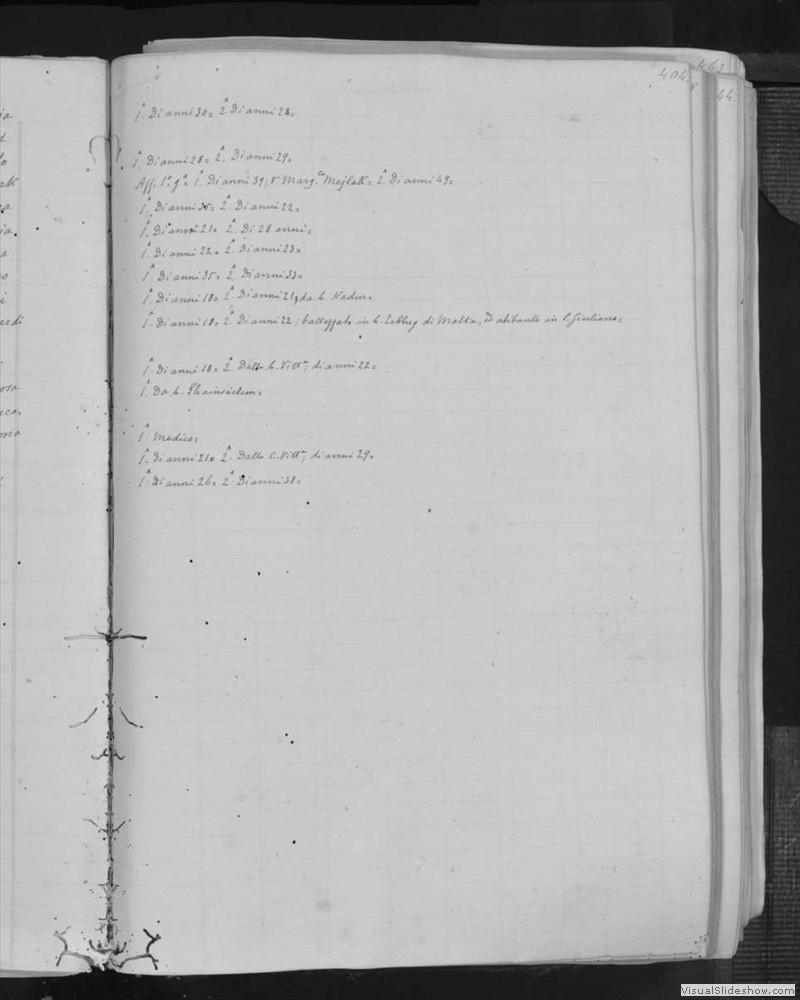 463
404.
44.
1.ª Di anni 30= 2.ª Di anni 28=
1.ª Di anni 28= 2.ª Di anni 29=
Aff. 1.º g.º= 1.ª Di anni 39; V. Marg.ta Mejlak= 2.ª Di anni 49=
1.ª Di anni 35= 2.ª Di anni 22=
1.ª Di anni 21= 2.ª Di 28 anni=
1.ª Di anni 22= 2.ª Di anni 23=
1.ª Di anni 35= 2.ª Di anni 33=
1.ª Di anni 18= 2.ª Di anni 21, da C. Nadur=
1.ª Di anni 18= 2.ª Di anni 22; battezzato in C. Zebbug di Malta, ed abitante in S. Giuliano=
1.ª Di anni 18= 2.ª Dalla C. Vitt.ª, di anni 22=
1.ª Da C. Ghainsielem=
1.ª Medico=
1.ª Di anni 21= 2.ª Dalla C. Vitt.ª, di anni 29=
1.ª Di anni 26= 2.ª Di anni 38=
VisualSlideshow.com